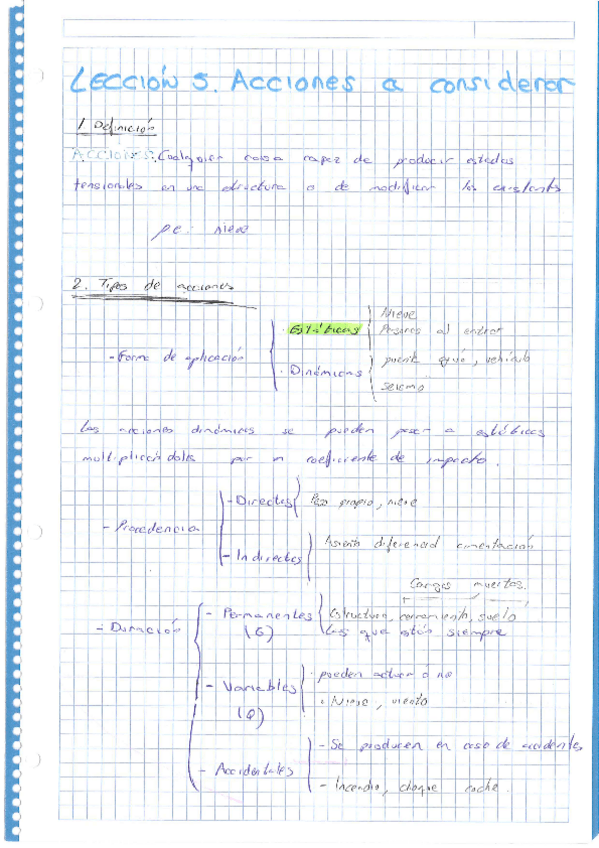 LECCIÓN 5. Acciones a considerar
1. Definición
ACCIONES: Cualquier causa capaz de producir estados
tensionales en una estructura o de modificar los existentes
pe: nieve
2. Tipos de acciones
- Forma de aplicación
· Estáticas
Nieve
Personas al entrar
· Dinámicas
puente grúa, vehículo
Seismo
Las acciones dinámicas se pueden pasar a estáticas
multiplicándolas por un coeficiente de impacto.
- Procedencia
- Directas
Peso propio, nieve
- Indirectas
Asiento diferencial cimentación
Cargas muertas.
- Duración
- Permanentes
(G)
Estructura, cerramiento, suelo
Las que están siempre
- Variables
(Q)
· pueden actuar ó no
· Nieve, viento
- Accidentales
- Se producen en caso de accidentes
- Incendio, choque coche.